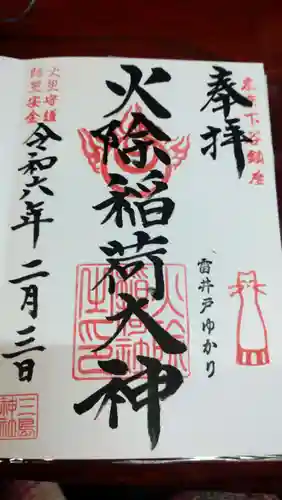 奉拝
東京下谷鎮座
雷井戸ゆかり
火除稲荷大神
火災守護
除災安全
令和六年
二月三日
三島神社